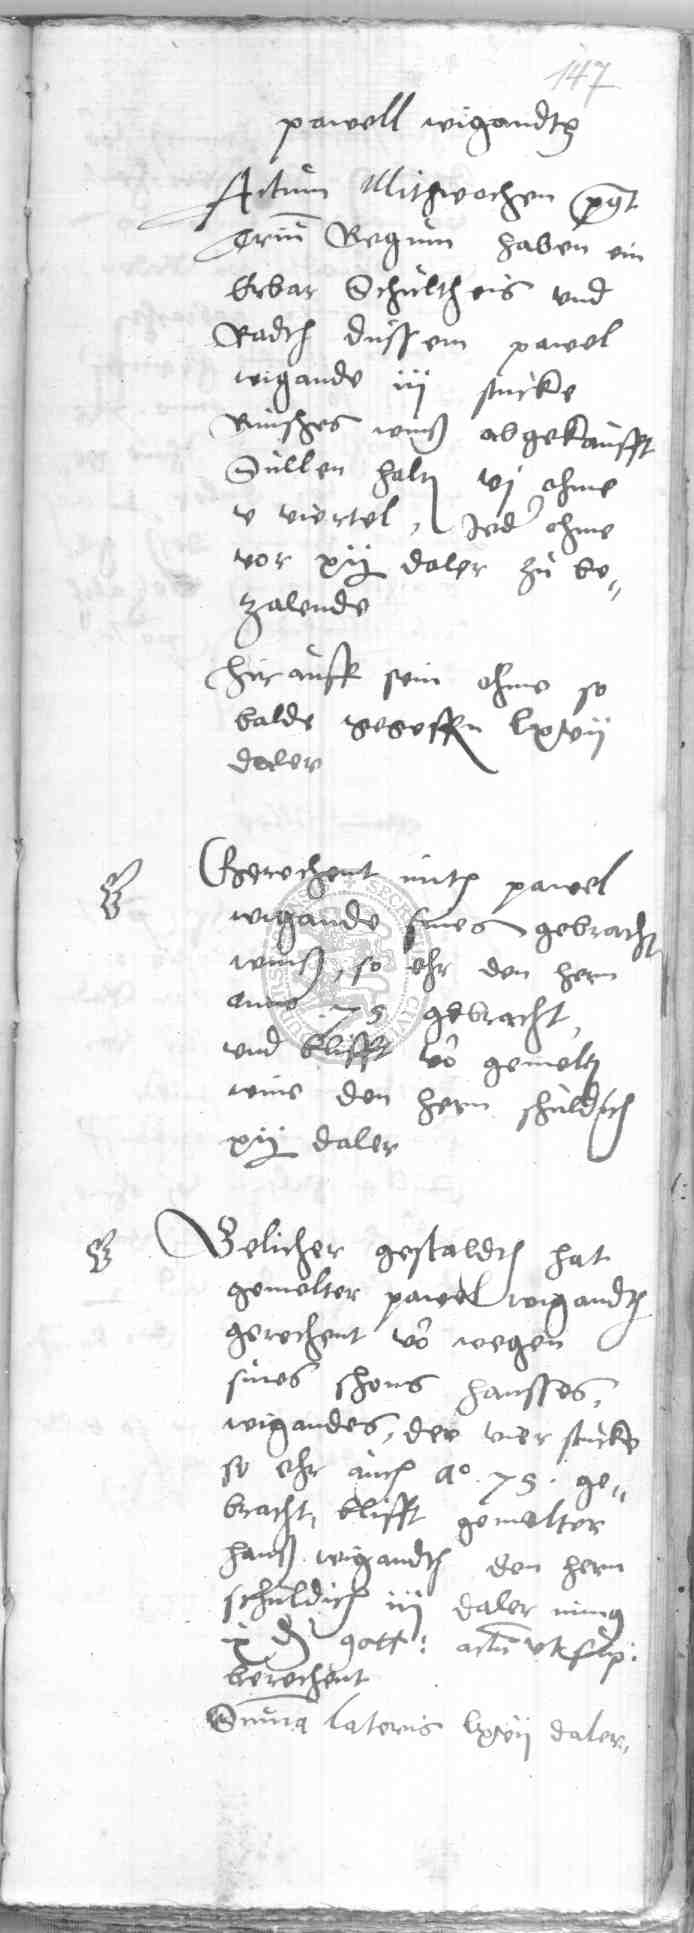 147
pawell wigandtz
Actum Mithwochen pgt
triu Regum haben ein
Erbar Schultheis und
Radth dussem pawel
wigande iij stucke
Rinsches wins abgekaufft
Sullen halt vj ohme
v viertel, Jed ohme
vor xij daler zu be„
zalende
hir auff sein ohme so
balde gegeffn lxvij
daler
Gerechent mith pawel
wigande sines gebracht
wins, so ehr den hern
anno 75 gebracht,
und blifft vo gemelt
wine den hern schuldich
xij daler
Gelicher gestaldth hat
gemelter pawel wigandth
gerechent vo wegen
sines shons hansses,
wigandes, der vier stucke
so ehr auch ao. 75. ge„
bracht, blifft gemelter
hans wigandth den hern
schuldich iij daler
gott: actu ut sup:
berechent
Suma lateris lxvij daler,